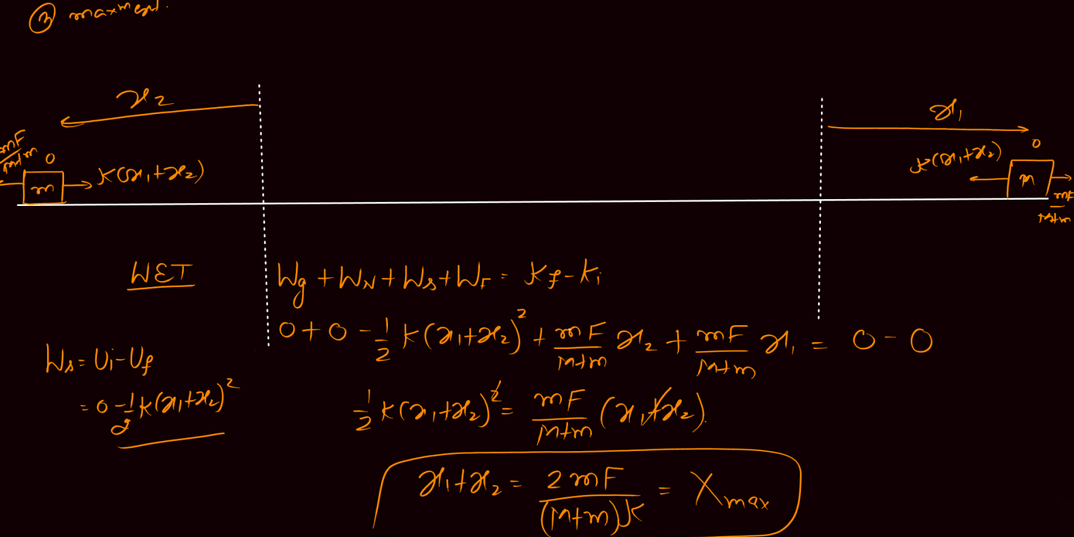 ② maxm expn.
x₂
x₁
mF/(M+m) 0 K(x₁+x₂)
m
K(x₁+x₂) 0
M
mF/(M+m)
WET
Wg + WN + Ws + WF = Kf - Ki
0 + 0 - 1/2 K(x₁+x₂)² + mF/(M+m) x₂ + mF/(M+m) x₁ = 0 - 0
Ws = Ui - Uf
= 0 - 1/2 K(x₁+x₂)²
1/2 K(x₁+x₂)² = mF/(M+m) (x₁+x₂).
x₁+x₂ = 2mF/((M+m)K) = Xmax